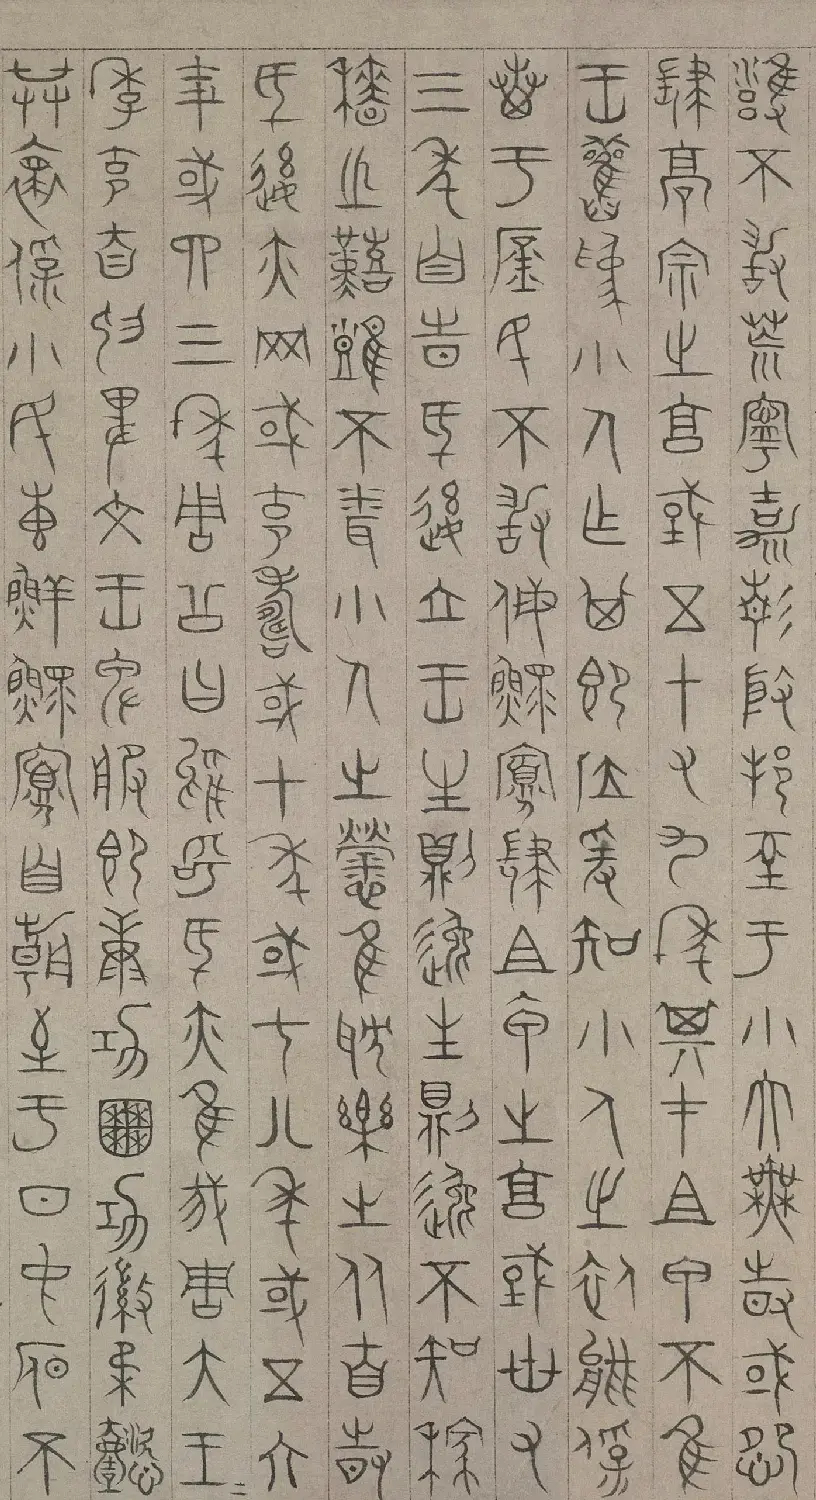 雝不敢荒寧嘉靖殷邦至于小大無時或怨
肆高宗之享國五十有九年其在祖甲不惟
王舊為小人作其即位爰知小人之依能保
惠于庶民不敢侮鰥寡肆祖甲之享國卅有
三年自時厥後立王生則逸生則逸不知稼
穡之艱難不聞小人之勞惟耽樂之從自時
厥後亦罔或克壽或十年或七八年或五六
年或四三年周公曰嗚呼厥亦惟我周大王=
季克自抑畏文王卑服即康功田功徽柔懿
恭懷保小民惠鮮鰥寡自朝至于日中昃不